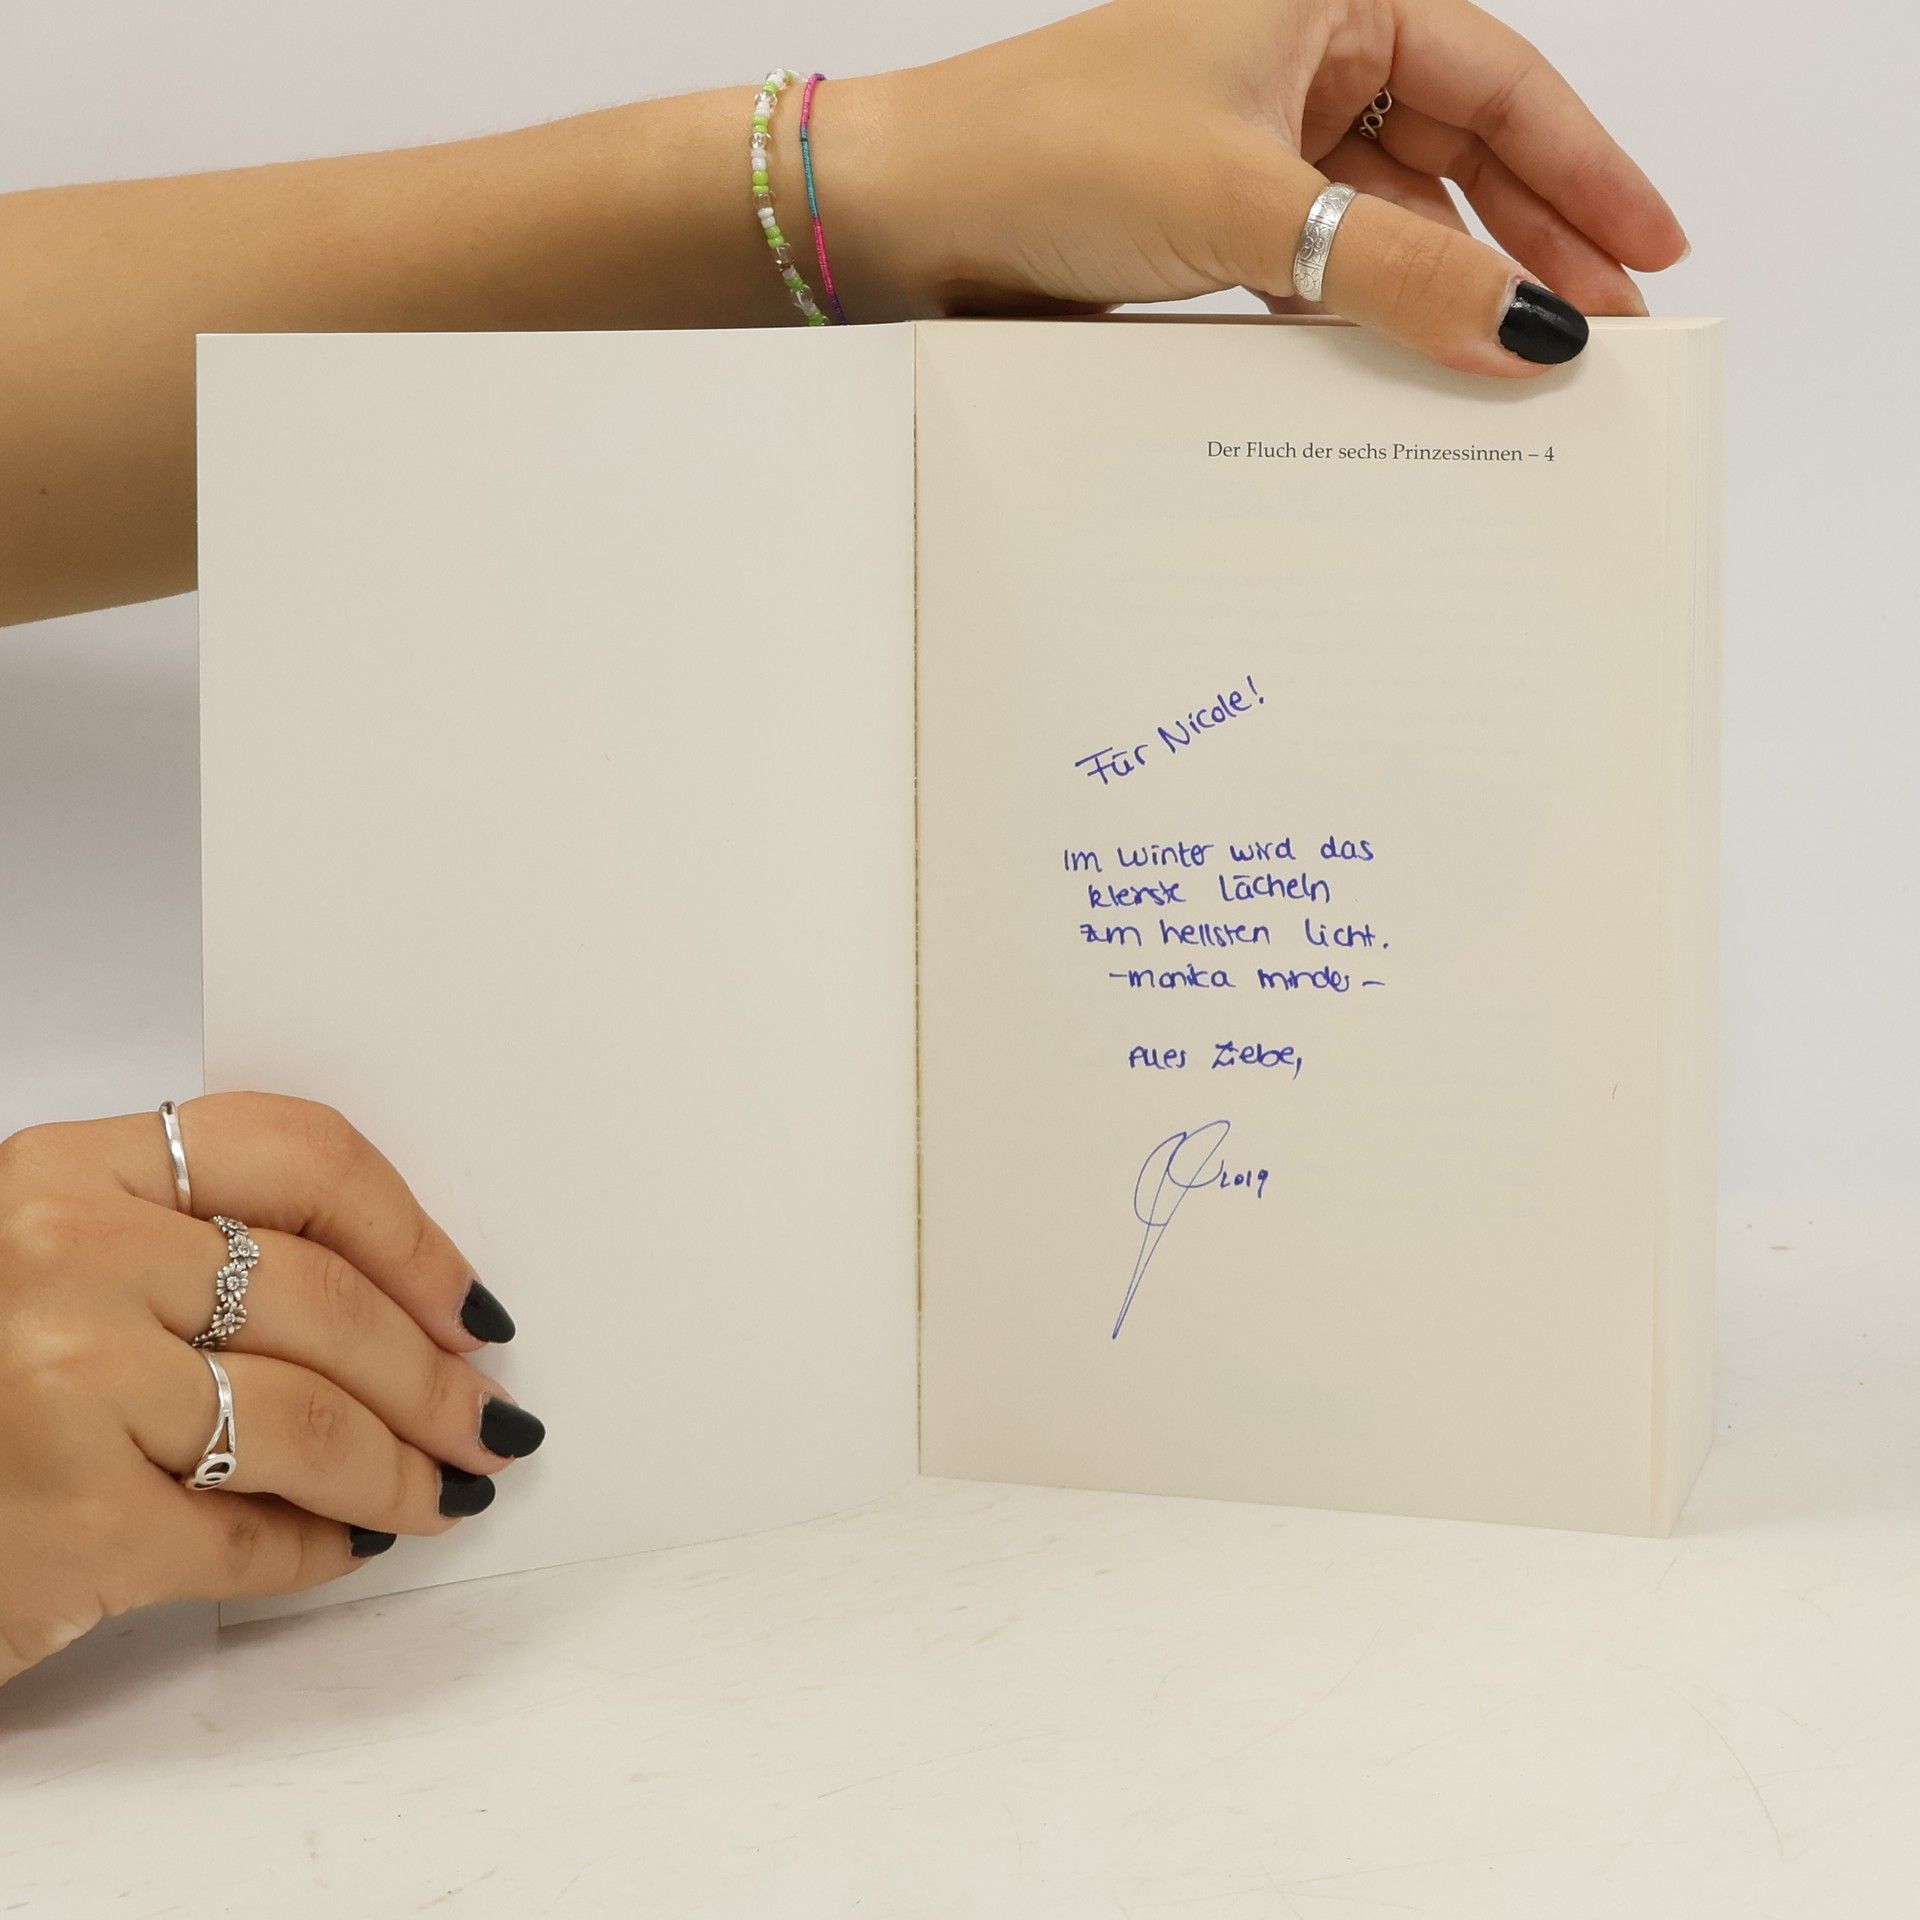 Der Fluch der sechs Prinzessinnen – 4
Für Nicole!
Im Winter wird das
kleinste Lächeln
zum hellsten Licht.
-Monika Minder-
Alles Liebe,
2019